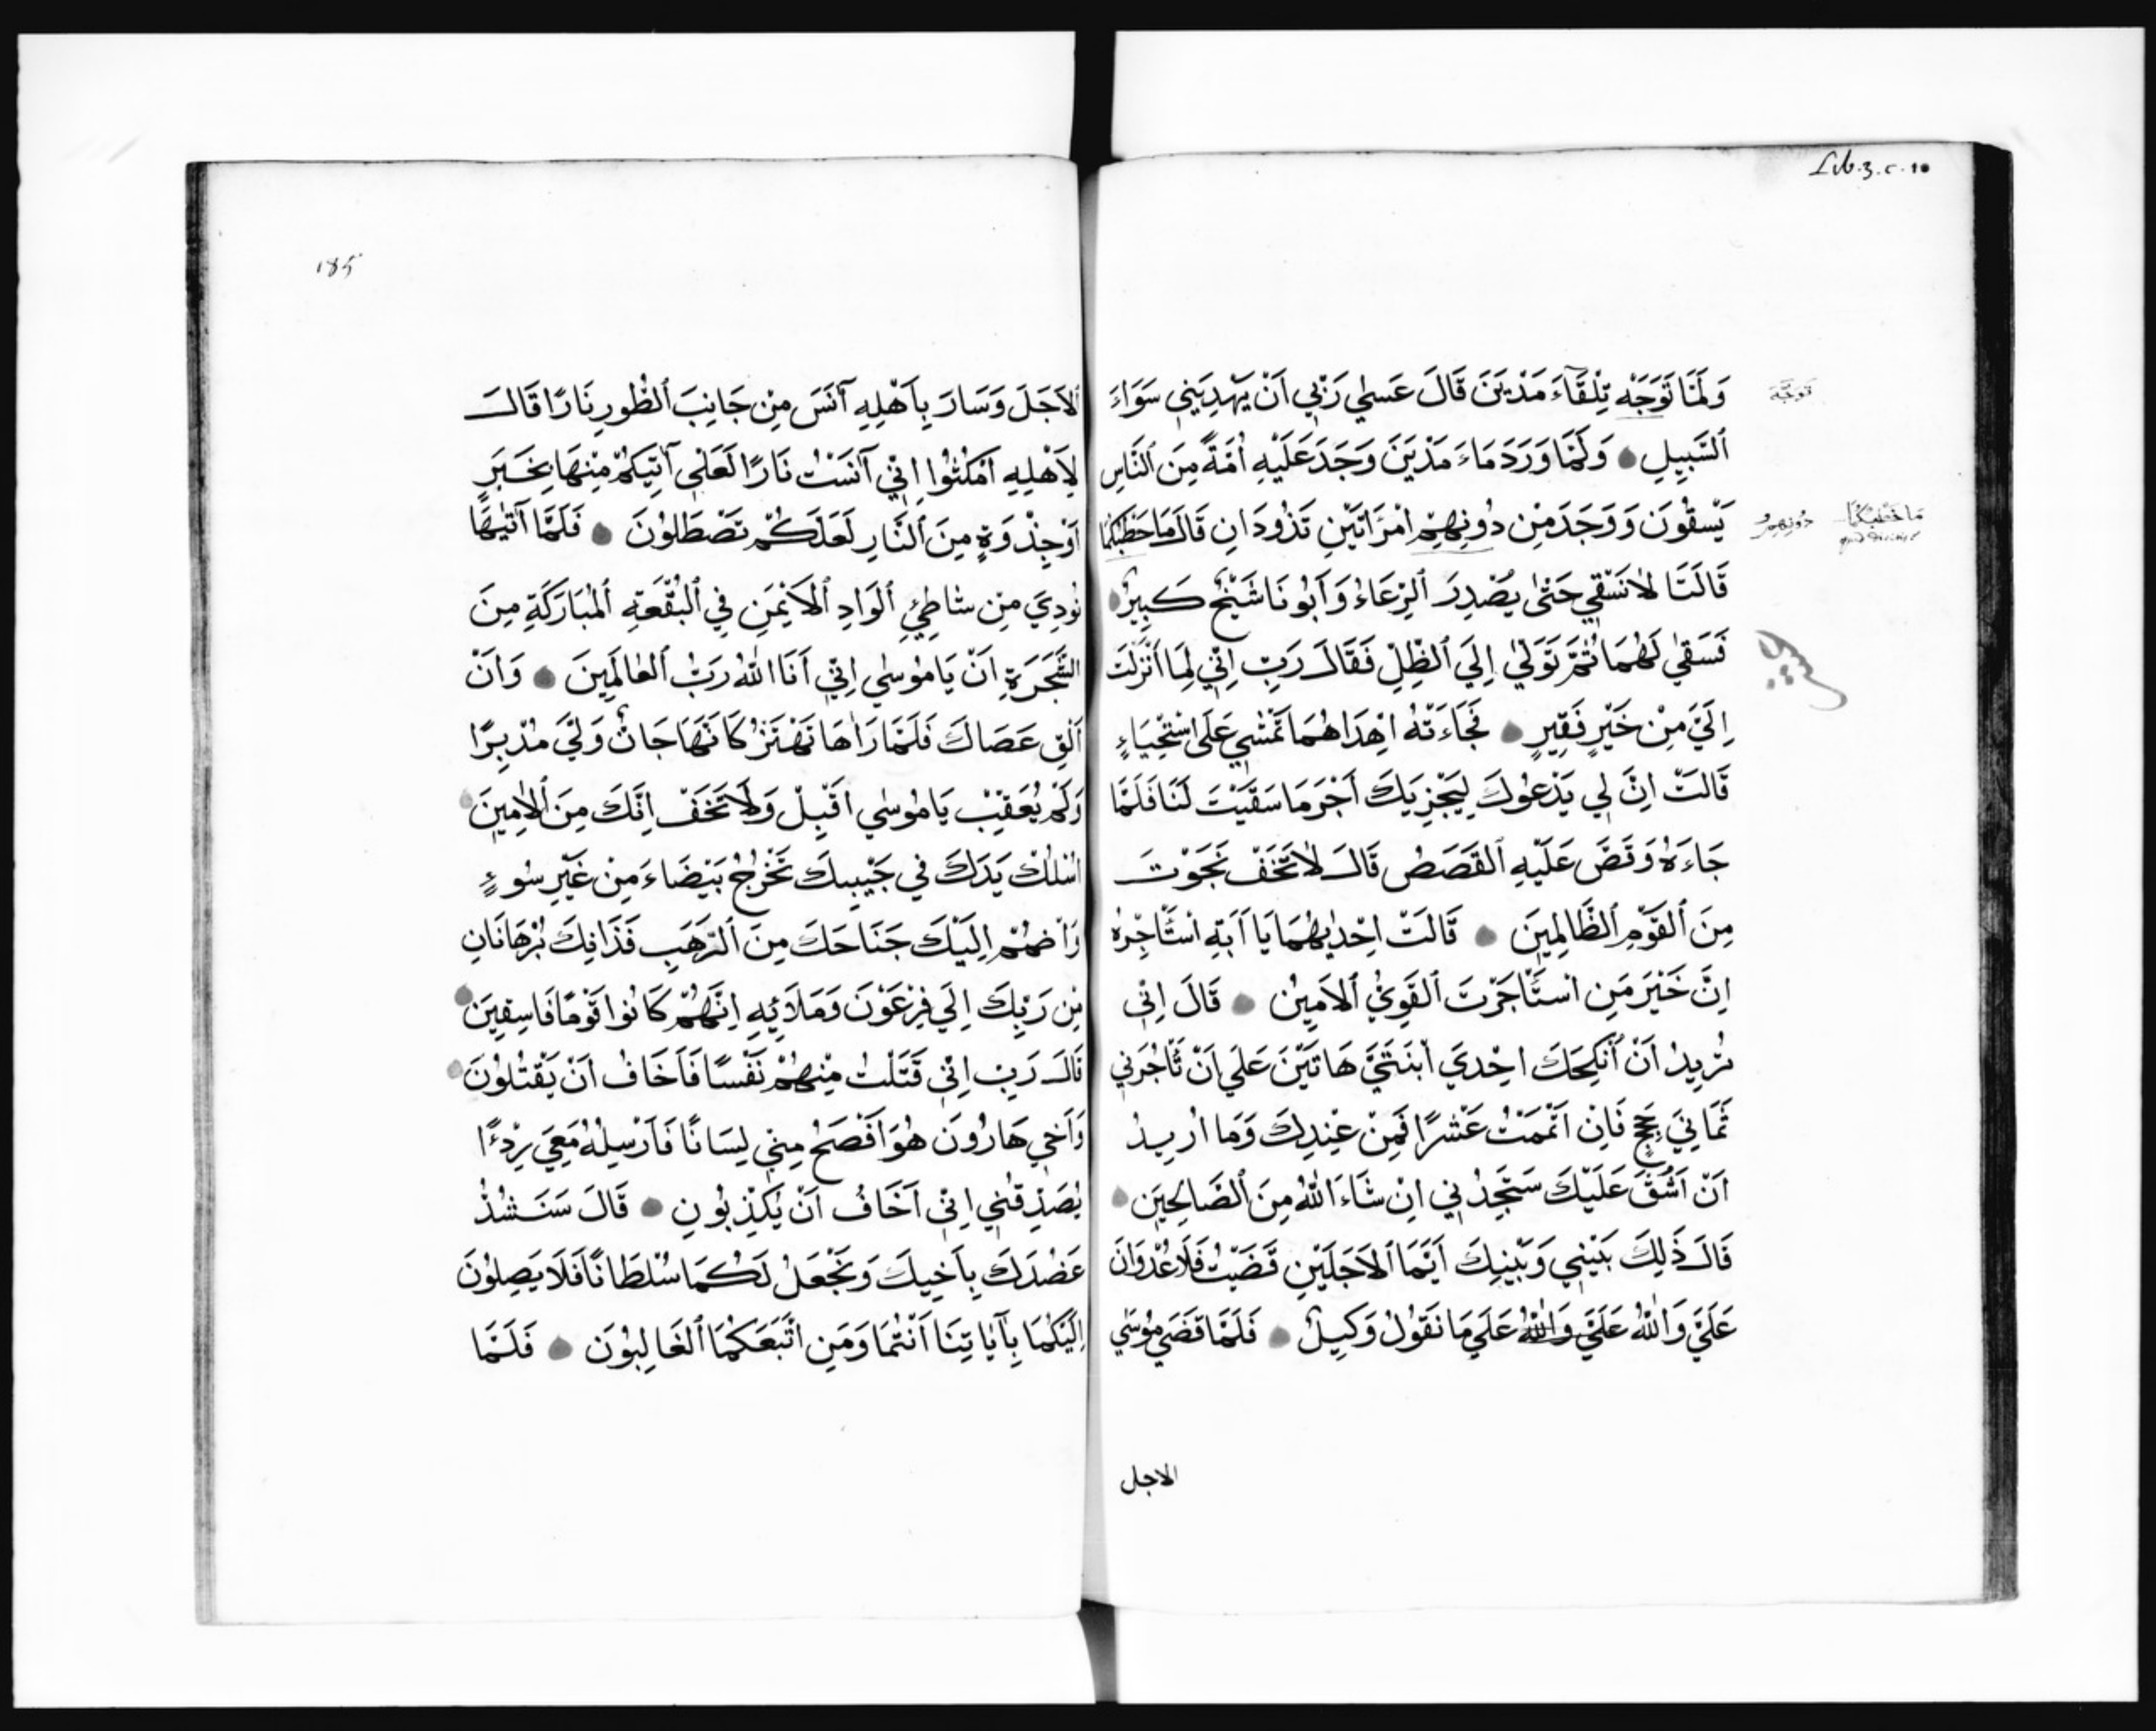 Lib. 3. c. 10
وَلَمَّا تَوَجَّهَ تِلْقَآءَ مَدْيَنَ قَالَ عَسٰي رَبِّي اَنْ يَهْدِيَنِي سَوَاءَ
توجّه
ٱلسَّبِيلِ وَلَمَّا وَرَدَ مَاءَ مَدْيَنَ وَجَدَ عَلَيْهِ اُمَّةً مِنَ ٱلنَّاسِ
يَسْقُونَ وَوَجَدَ مِنْ دُونِهِمْ اِمْرَاَتَيْنِ تَذُودَانِ قَالَ مَا خَطْبُكُمَا
دُونِهِمُ
مَا خَطْبُكُمَا
قَالَتَا لَا نَسْقِي حَتّٰي يُصْدِرَ ٱلرِّعَاءُ وَاَبُونَا شَيْخٌ كَبِيرٌ
فَسَقٰي لَهُمَا ثُمَّ تَوَلّٰي اِلَي ٱلظِّلِّ فَقَالَ رَبِّ اِنِّي لِمَا اَنْزَلْتَ
اِلَيَّ مِنْ خَيْرٍ فَقِيرٍ فَجَاءَتْهُ اِهْدَاهُمَا تَمْشِي عَلَي اسْتِحْيَاءٍ
قَالَتْ اِنَّ لِي يَدْعُوكَ لِيَجْزِيَكَ اَجْرَ مَا سَقَيْتَ لَنَا فَلَمَّا
جَاءَهُ وَقَصَّ عَلَيْهِ ٱلقَصَصَ قَالَ لَا تَخَفْ نَجَوْتَ
مِنَ ٱلقَوْمِ ٱلظَّالِمِينَ قَالَتْ اِحْدٰيهُمَا يَا اَبَتِ اسْتَاْجِرْهُ
اِنَّ خَيْرَ مَنِ اسْتَاْجَرْتَ ٱلقَوِيُّ ٱلاَمِينُ قَالَ اِنِّي
نُرِيدُ اَنْ اُنْكِحَكَ اِحْدَي ٱبْنَتَيَّ هَاتَيْنِ عَلَي اَنْ تَاْجُرَنِي
ثَمَانِيَ حِجَجٍ فَاِنْ اَتْمَمْتَ عَشْرًا فَمِنْ عِنْدِكَ وَمَا اُرِيدُ
اَنْ اَشُقَّ عَلَيْكَ سَتَجِدُنِي اِنْ شَاءَ اللّٰهُ مِنَ ٱلصَّالِحِينَ
قَالَ ذَلِكَ بَيْنِي وَبَيْنِكَ اَيَّمَا ٱلاَجَلَيْنِ قَضَيْتُ فَلَا عُدْوَانَ
عَلَيَّ وَاللّٰهُ عَلَيَّ وَاللّٰهُ عَلَي مَا نَقُولُ وَكِيلٌ فَلَمَّا قَضَي مُوسٰي
الاجل
185
ٱلاَجَلَ وَسَارَ بِاَهْلِهِ آنَسَ مِنْ جَانِبَ ٱلطُّورِ نَارًا قَالَ
لِاَهْلِهِ اَمْكُثُوا اِنِّي آنَسْتُ نَارًا لَعَلِّي آتِيكُمْ مِنْهَا بِخَبَرٍ
اَوْ جِذْوَةٍ مِنَ ٱلنَّارِ لَعَلَكُمْ تَصْطَلُونَ فَلَمَّا اَتٰيهَا
نُودِيَ مِنْ شَاطِئِ ٱلوَادِ ٱلاَيْمَنِ فِي ٱلبُقْعَةِ ٱلمُبَارَكَةِ مِنَ
الشَّجَرَةِ اَنْ يَامُوسٰي اِنِّي اَنَا اللّٰهُ رَبُّ ٱلعَالَمِينَ وَاَنْ
اَلْقِ عَصَاكَ فَلَمَّا رَاٰهَا تَهْتَزُّ كَاَنَّهَا جَانٌّ وَلَّيَ مُدْبِرًا
وَلَمْ يُعَقِّبْ يَامُوسٰي اَقْبِلْ وَلَا تَخَفْ اِنَّكَ مِنَ ٱلاٰمِنِينَ
اسْلُكْ يَدَكَ فِي جَيْبِكَ تَخْرُجْ بَيْضَاءَ مِنْ غَيْرِ سُوءٍ
وَاَضْمُمْ اِلَيْكَ جَنَاحَكَ مِنَ ٱلرَّهَبِ فَذَانِكَ بُرْهَانَانِ
مِنْ رَبِّكَ اِلَي فِرْعَوْنَ وَمَلَائِهِ اِنَّهُمْ كَانُوا قَوْمًا فَاسِقِينَ
قَالَ رَبِّ اِنِّي قَتَلْتُ مِنْهُمْ نَفْسًا فَاَخَافُ اَنْ يَقْتُلُونَ
وَاَخِي هَارُونَ هُوَ اَفْصَحُ مِنِّي لِسَانًا فَاَرْسِلْهُ مَعِيَ رِدْءًا
يُصَدِّقُنِي اِنِّي اَخَافُ اَنْ يُكَذِّبُونِ قَالَ سَنَشُدُّ
عَضُدَكَ بِاَخِيكَ وَنَجْعَلُ لَكُمَا سُلْطَانًا فَلَا يَصِلُونَ
اِلَيْكُمَا بِآيَاتِنَا اَنْتُمَا وَمَنِ اتَّبَعَكُمَا ٱلغَالِبُونَ فَلَمَّا